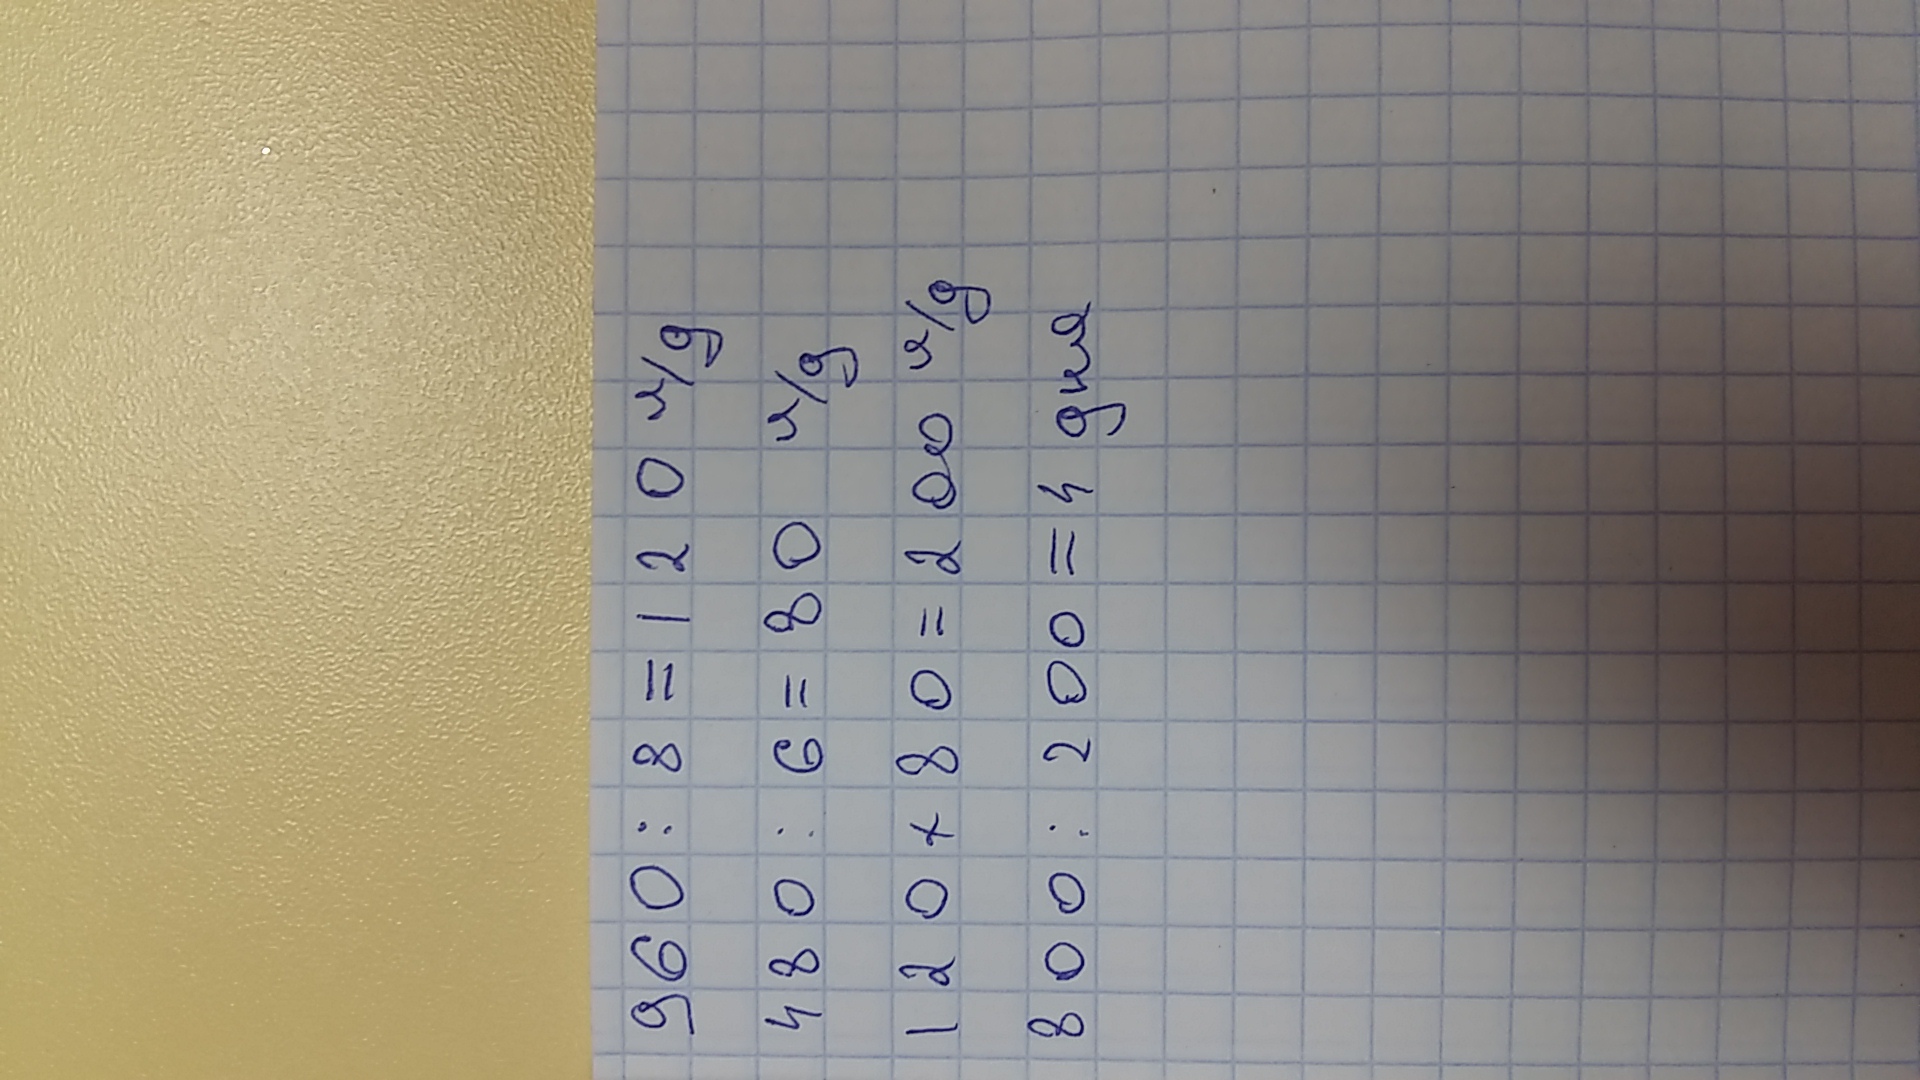 960:8=120 ч/д
480:6=80 ч/д
120+80=200 ч/д
800:200=4 дня